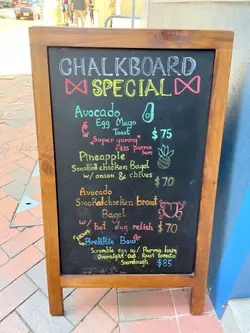 CHALKBOARD
SPECIAL
Avocado
Egg Mayo
Toast $75
"Super yummy"
parma
ham
Pineapple
Smoked chicken Bagel
w/ onion & chives
$70
Avocado
Smoked chicken breast
Bagel
w/ hot dog relish $70
Bow
Scramble egg w/ Parma ham
Roast tomato
Sourdough $85